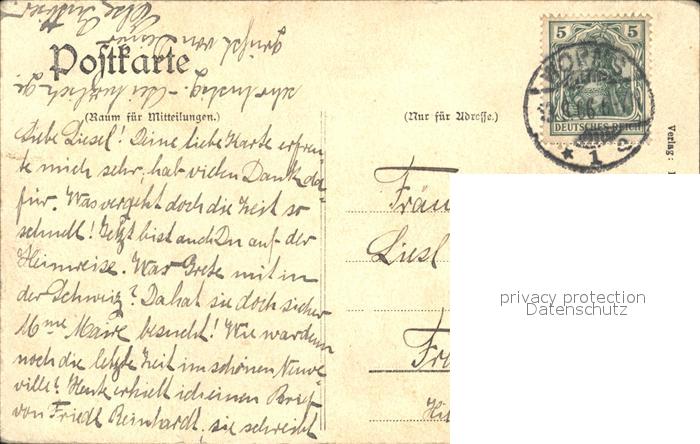 Postkarte
(Raum für Mitteilungen.)
(Nur für Adresse.)
5 5
DEUTSCHES REICH
WORMS
* 1
Verlag:
Liebe Liesel! Deine liebe Karte erfreu-
te mich sehr, hab vielen Dank da-
für. Was vergeht doch die Zeit so
schnell! Jetzt bist auch Du auf der
Heimreise. War Grete mit in
der Schweiz? Da hat sie doch sicher
Mme Maire besucht! Wie war denn
noch die letzte Zeit im schönen Neuve-
ville? Heute erhielt ich einen Brief
von Friedl Reinhardt, sie schreibt
sehr lustig. – Sei herzlich ge-
grüsst von Deiner
Else
Fräu
Liesl
Fra
privacy protection
Datenschutz